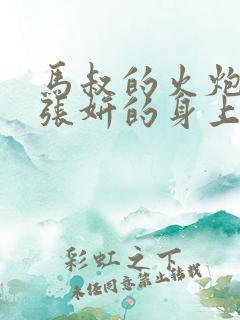 馬叔的火炮
張妍的身上
彩虹之下
未經同意禁止轉載